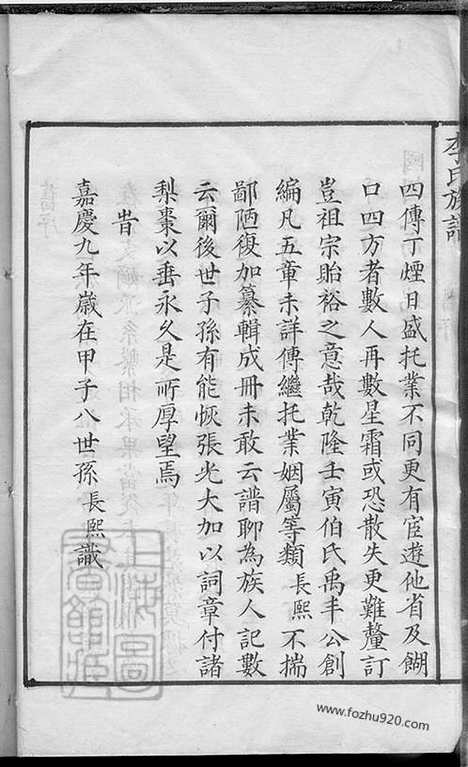 李氏族譜
四傳丁煙日盛托業不同更有宦遊他省及餬
口四方者數人再數星霜或恐散失更難釐訂
豈祖宗貽裕之意哉乾隆壬寅伯氏禹丰公創
編凡五章未詳傳繼托業姻屬等類長熙不揣
鄙陋復加纂輯成冊未敢云譜聊為族人記數
云爾後世子孫有能恢張光大加以詞章付諸
梨棗以垂永久是所厚望焉
旹
嘉慶九年歲在甲子八世孫長熙識
上海圖書館藏
www.fozhu920.com